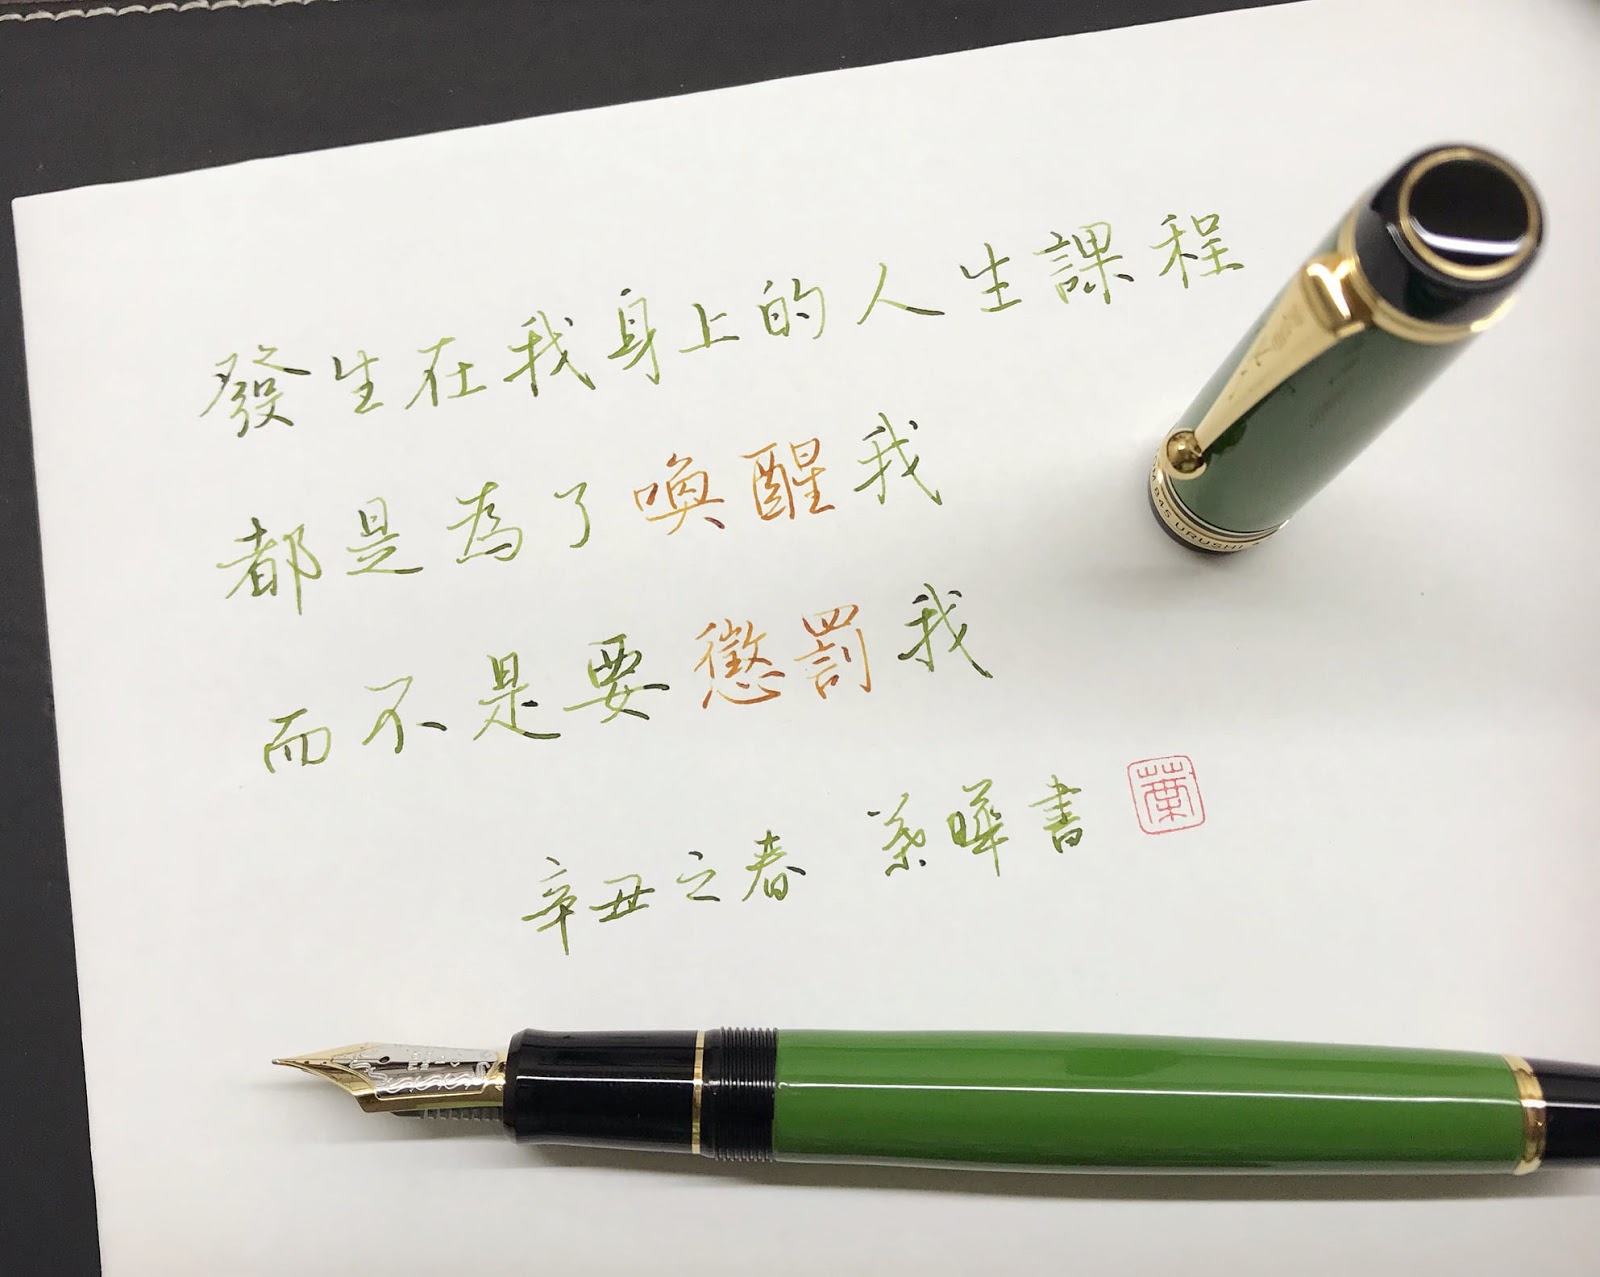 發生在我身上的人生課程
都是為了喚醒我
而不是要懲罰我
辛丑之春 葉曄書 葉
845 URUSHI